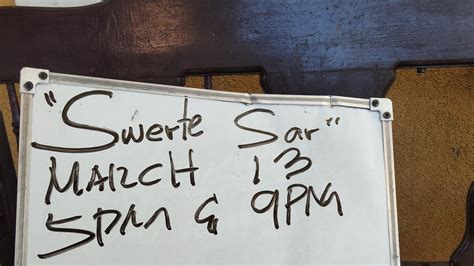 "Swerte Sar"
MARCH 13
5PM & 9PM